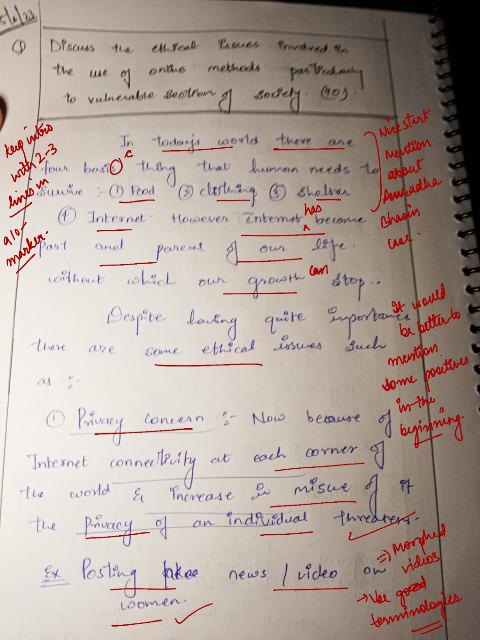 5/6/23
Q Discuss the ethical issues involved in
the use of online methods particularly
to vulnerable section of society. (10).
In today's world there are
four basic thing that human needs to
survive :- ① Food ② clothing ③ Shelter
④ Internet. However internet has become
part and parcel of our life.
without which our growth can stop..
Despite having quite importance
there are some ethical issues such
as :-
① Privacy concern :- Now because of
Internet connectivity at each corner of
the world & increase in misuse of it
the Privacy of an individual threaten.
Ex Posting fake news / video on
women.
Keep intro
with 2-3
lines in
a 10-
marker.
Nice start
mention
about
Anuradha
Bhasin
case.
It would
be better to
mention
some positives
in the
beginning.
⇒ Morphed
videos
→ Use good
terminologies